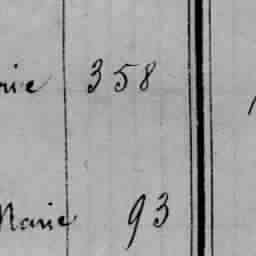 rie 358
Marie 93